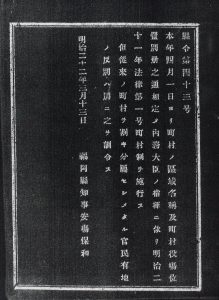 縣令第四十三号
本年四月一日ヨリ町村ノ區域名稱及町村役場位
置別冊之通相定メ内務大臣ノ指揮ニ依リ明治二
十一年法律第一号町村制ヲ施行ス
但従來ノ町村ヲ割キ分屬セシメタル官民有地
ノ反別八別ニ之ヲ訓令ス
明治二十二年三月十三日
福岡縣知事安塲保和